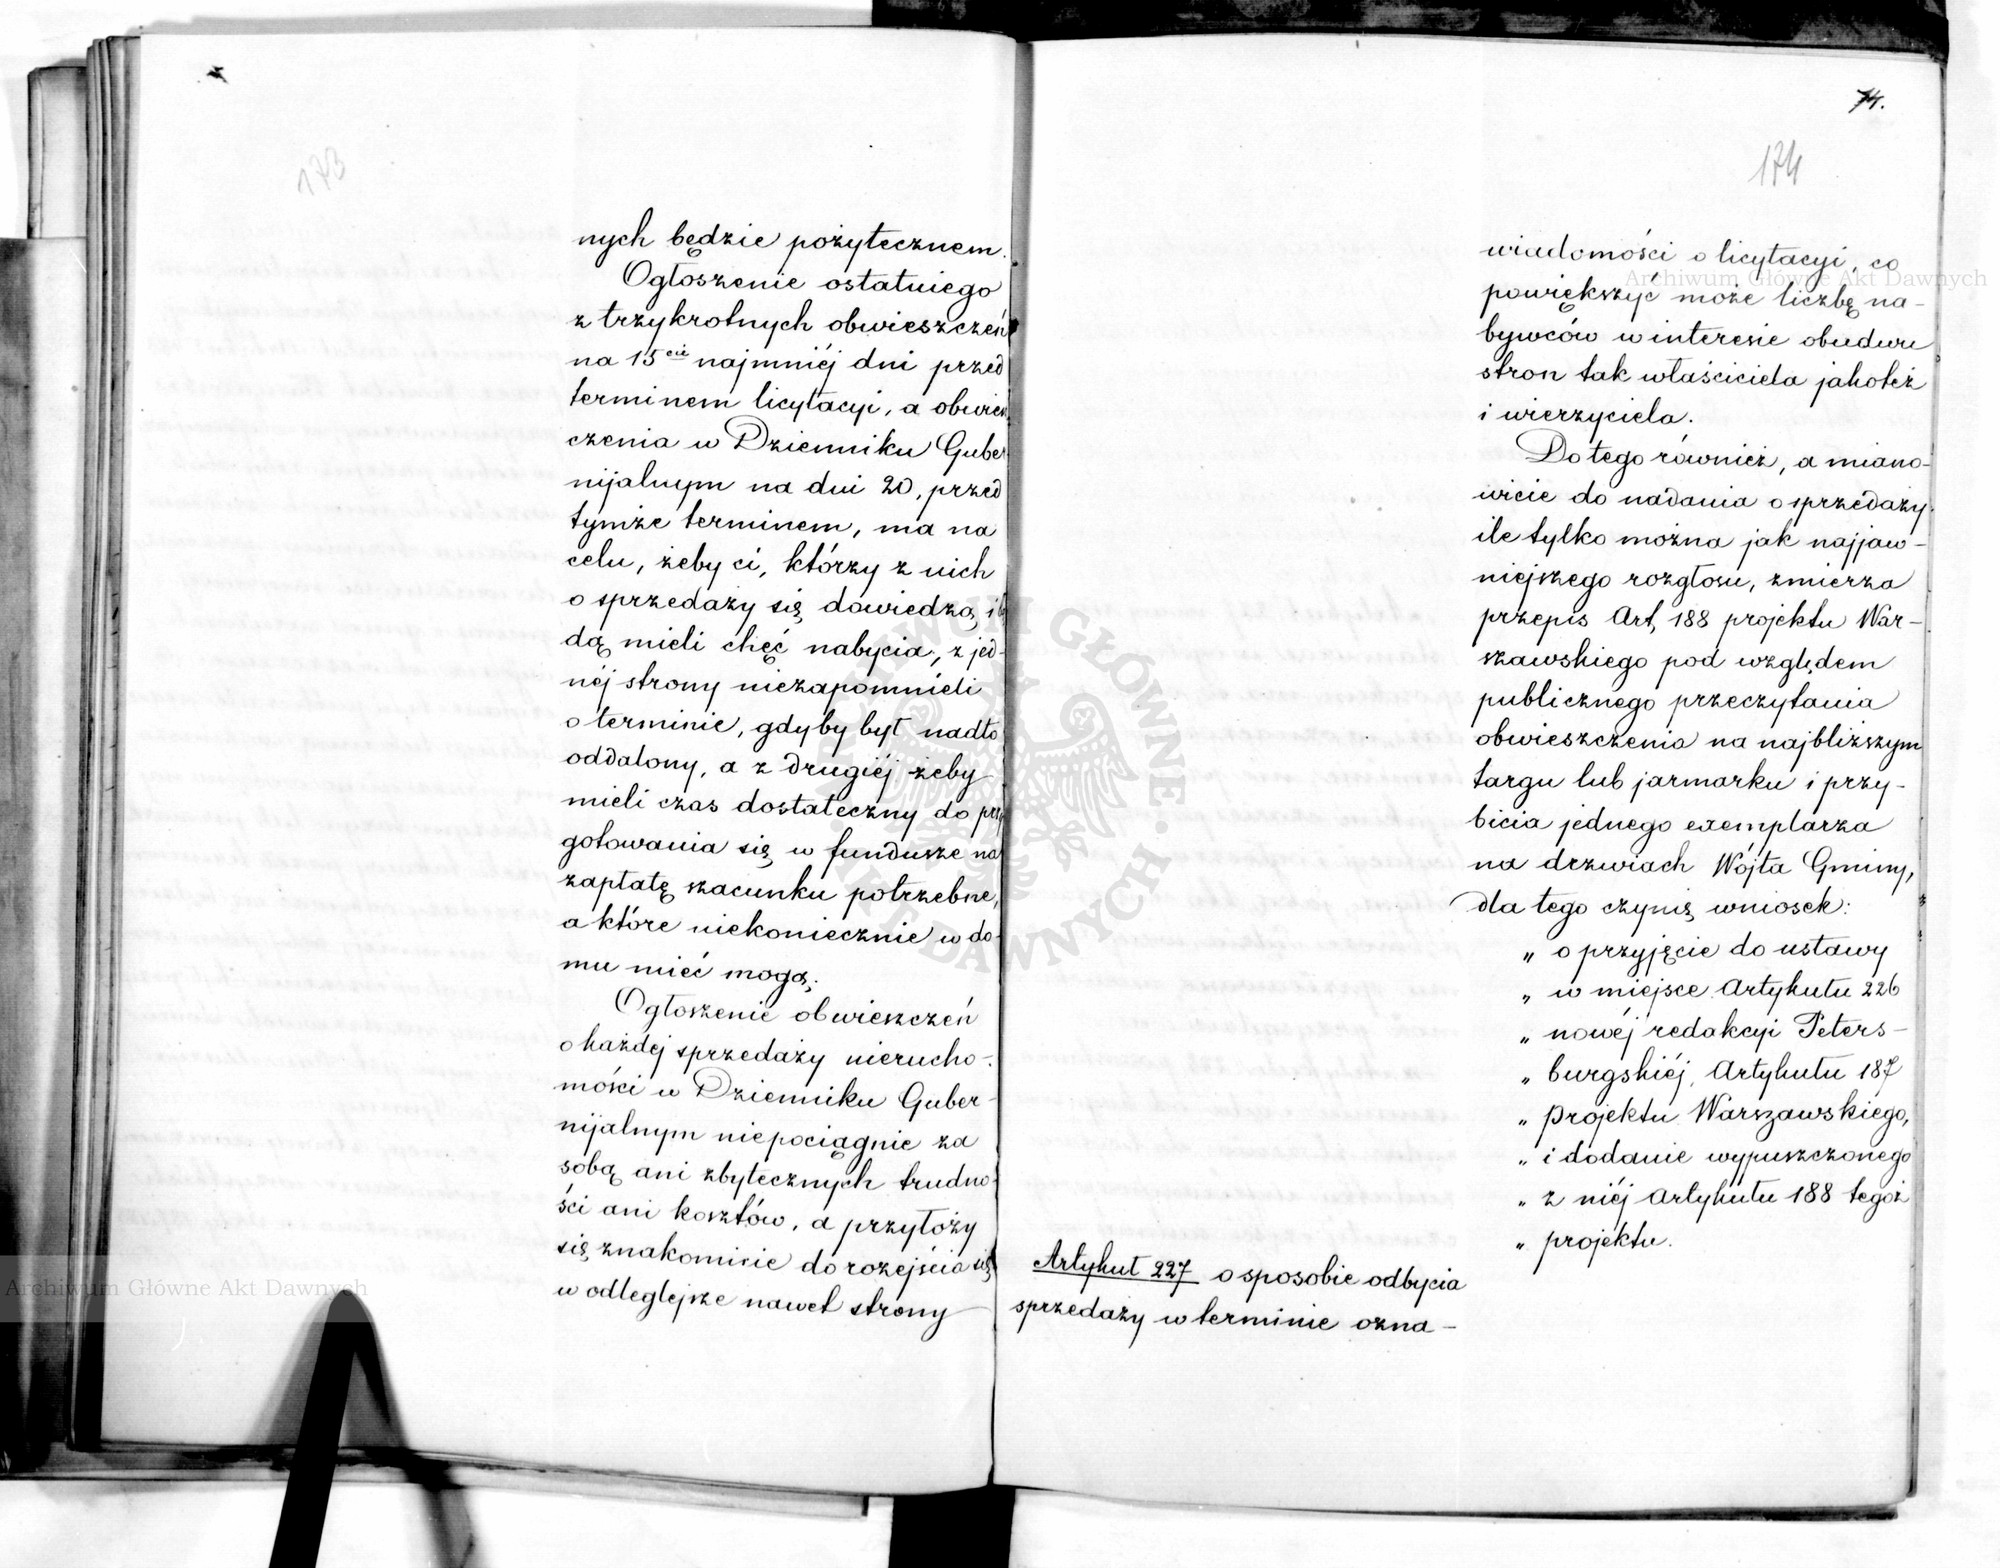 173
nych będzie pożytecznem.
Ogłoszenie ostatniego
z trzykrotnych obwieszczeń
na 15cie najmniéj dni przed
terminem licytacyi, a obwiesz
czenia w Dzienniku Guber
nijalnym na dni 20, przed
tymże terminem, ma na
celu, żeby ci, którzy z nich
o sprzedaży się dowiedzą i bę
dą mieli chęć nabycia, z jed-
néj strony niezapomnieli
o terminie, gdyby był nadto
oddalony, a z drugiéj żeby
mieli czas dostateczny do przy
gotowania się w fundusze na
zapłatę szacunku potrzebne,
a które niekoniecznie w do-
mu mieć mogą.
Ogłoszenie obwieszczeń
o każdéj sprzedaży nierucho-
mości w Dzienniku Guber-
nijalnym niepociągnie za
sobą ani zbytecznych trudno-
ści ani kosztów, a przyłoży
się znakomicie do rozejścia się
w odleglejsze nawet strony
74.
174
wiadomości o licytacyi, co
powiększyć może liczbę na-
bywców w interesie obudwu
stron tak właściciela jakoteż
i wierzyciela.
Do tego również, a miano-
wicie do nadania o sprzedaży
ile tylko można jak najjaw-
niejszego rozgłosu, zmierza
przepis Art, 188 projektu War-
szawskiego pod względem
publicznego przeczytania
obwieszczenia na najbliższym
targu lub jarmarku i przy-
bicia jednego exemplarza
na drzwiach Wójta Gminy,
dla tego czynię wniosek:
„ o przyjęcie do ustawy
„ w miejsce Artykułu 226
„ nowéj redakcyi Peters-
„ burgskiéj, Artykułu 187
„ projektu Warszawskiego,
„ i dodanie wypuszczonego
„ z niéj Artykułu 188 tegoż
„ projektu.
Artykuł 227 o sposobie odbycia
sprzedaży w terminie ozna-
Archiwum Główne Akt Dawnych
Archiwum Główne Akt Dawnych
ARCHIWUM GŁÓWNE · AKT DAWNYCH ·